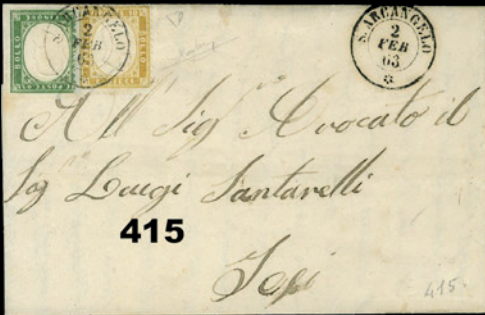 S. ARCANGELO
2
FEB
63
S. ARCANGELO
2
FEB
63
BOLLO
BOLLO
All' Sigre Avocato il
Sigre Luigi Santarelli
415
Jesi
415.